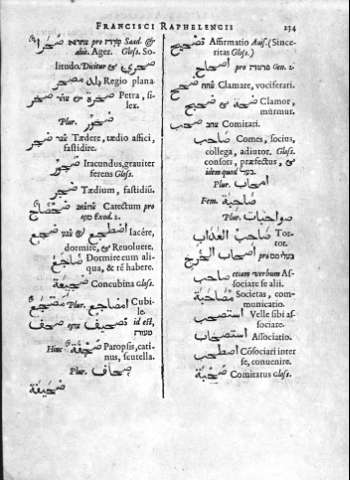 FRANCISCI RAPHELENGII 234
صحرا pro Saad. &
alii. Ager. Gloss. So-
litudo. Dicitur & صحرى
Regio plana.
صخر & صخرة Petra, si-
lex.
Plur. صخور
ضجر Tædere, tædio affici,
fastidire.
ضجر Iracundus, graviter
ferens Gloss.
ضجر Tædium, fastidiũ.
Carectum pro
Exod. 2.
ضجع & اضطجع Iacére,
dormire, & Reuoluere.
ضاجع Dormire cum ali-
qua, & rê habere.
ضجيعة Concubina Gloss.
Plur. مضاجع Cubi-
le.
صحف تصحيف id est,
Hinc صحفة Paropsis, cati-
nus, scutella.
Plur. صحاف
صحيفة
تصحيح Affirmatio Auf. (Since-
ritas Gloss.)
pro Gen. 2.
ضجّ Clamare, vociferari.
ضجّة & ضجيج Clamor,
murmur.
صحب Comitari.
صاحب Comes, socius,
collega, adiutor. Gloss.
consors, præfectus, &
idem quod
Plur. اصحاب
Fem. صاحبة
Plur. صواحبات
صاحب العذاب Tor-
tor.
اصحاب الخرج pro
صاحب etiam verbum As-
sociare se alii.
مصاحبة Societas, com-
municatio.
استصحب Velle sibi as-
sociare.
استصحاب Associatio.
اصطحب Cõsociari inter
se, conuenire.
صحبة Comitatus Gloss.